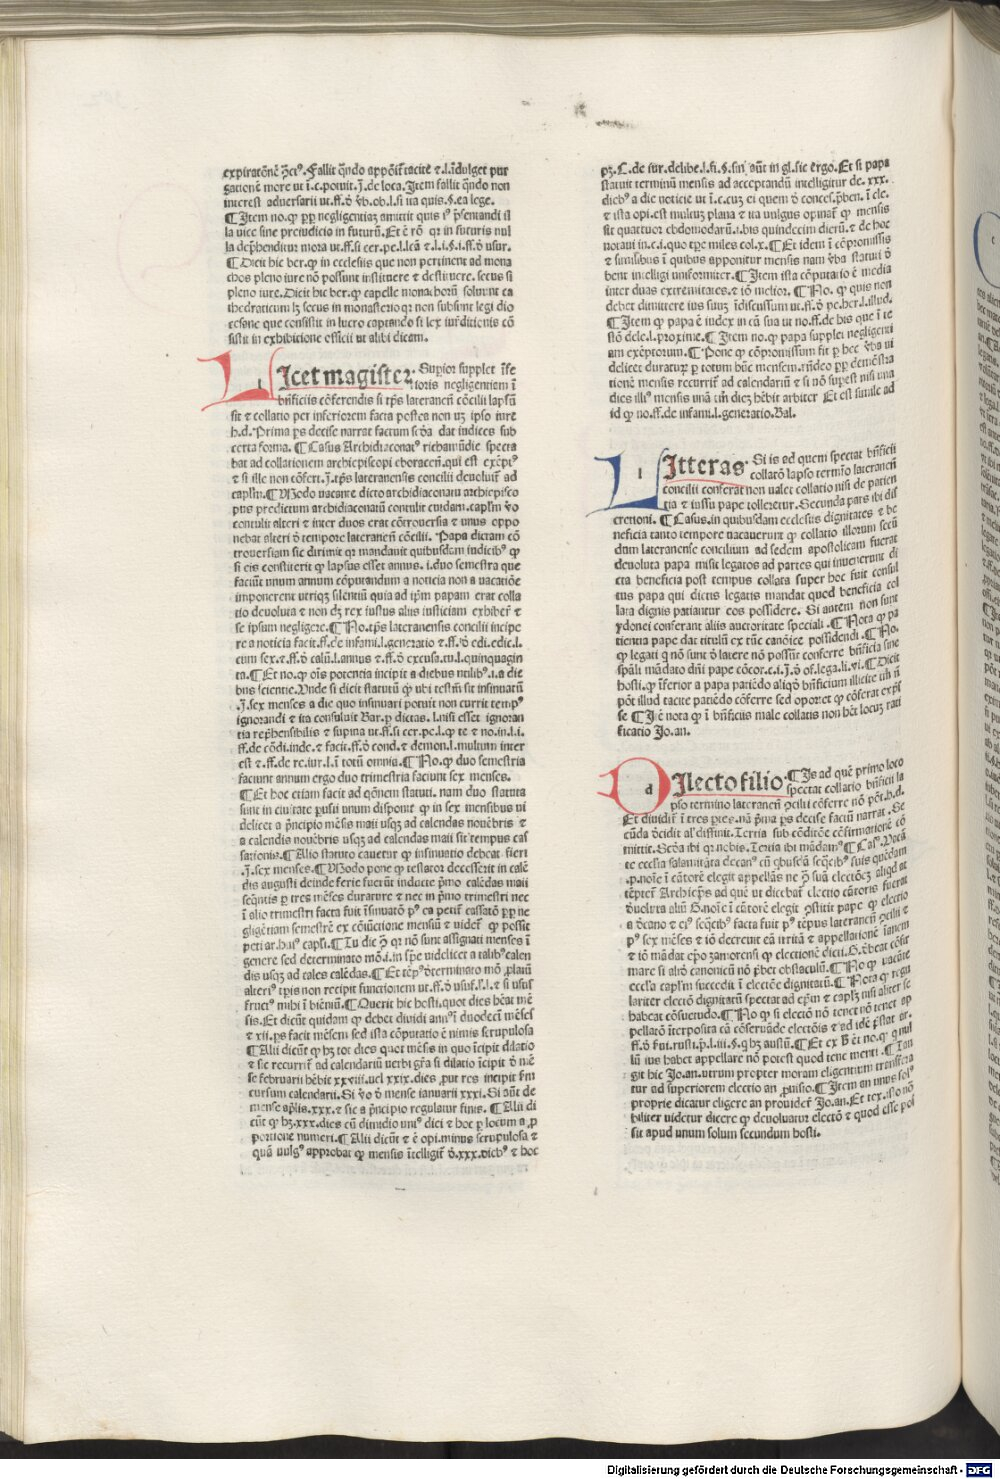 expiratōnē p̄ctꝰ. Fallit qn̄do appōit̄ tacite ⁊ .l. īdulget pur
gationē more ut ī.c. potuit. J. de loca. Item fallit qn̄do non
interest adversarii ut.ff.ꝺ ꝟb.ob.l.si ita quis.§.ea lege.
¶ Item no. ꝙ ꝑꝑ negligentiaꝫ amittit quis iꝰ p̄sentandi il
la vice sine preiudicio in futurū. Et ē rō qꝛ in futuris nul
la dep̄henditur mora ut.ff.si cer.pe.l.lcā ⁊ .l.i.§.i.ff.ꝺ usur.
¶ Dicit hic ber. ꝙ in ecclesiis que non pertinent ad mona
chos pleno iure nō possunt instituere ⁊ destituere. secus si
pleno iure. Dicit hic ber. ꝙ capelle monachorū soluunt ca
thedraticum lꝫ secus in monasterio qꝛ non subsunt legi dio
cesane que consistit in lucro captando si lex iurditionis cō
sistit in exhibitione officii ut alibi dicam.
Licet magister. Supior supplet īfe
rioris negligentiem ī
bn̄ficiis cōferendis si tp̄s lateranen̄ cōcilii lapsū
sit ⁊ collatio per inferiorem facta postea non uꝫ ipso iure
h.d. Prima ps decise narrat factum scd̄a dat iudices sub
certa forma. ¶ Casus Archidiaconatꝰ richamūdie specta
bat ad collationem archiepiscopi eboracen̄. qui est exēptꝰ
⁊ si ille non cōfert. J. tp̄s lateranensis concilii devoluit̄ ad
caplm̄. ¶ Modo vacante dicto archidiaconatu archiepisco
pus predictum archidiaconatū contulit cuidam. caplm̄ v̄o
contulit alteri ⁊ inter duos erat cōtroversia ⁊ unus oppo
nebat alteri ꝺ tempore lateranen̄ cōcilii. Papa dictam cō
troversiam sic dirimit qꝛ mandavit quibusdem iudicibꝰ ꝙ
si eis constiterit ꝙ lapsus esset annus. i. duo semestra que
faciūt unum annum cōputandum a noticia non a vacatiōe
imponerent utriqꝫ silentiū quia ad ip̄m papam erat colla
tio devoluta ⁊ non dꝫ rex iustus aliis iusticiam exhiber̄ ⁊
se ipsum negligere. ¶ No. tp̄s lateranensis concilii incipe
re a noticia facit.ff.de infami.l.generatio ⁊ .ff.ꝺ edi.edic.l.
cum sex.⁊.ff.ꝺ calū.l.annus ⁊ .ff.ꝺ excusa.tu.l.quinquagin
ta. ¶ Et no. ꝙ oīs potentia incipit a diebus utilibꝰ.i.a die
bus scientie. Unde si dicit statutū ꝙ ubi testm̄ sit insinuatū
.J. sex menses a die quo insinuari potuit non currit tempꝰ
ignorandi ⁊ ita consuluit Bar. ꝑ dictas. l. nisi esset ignoran
tia rep̄hensibilis ⁊ supina ut.ff.si cer.pe.l. ꝙ te ⁊ no.in.l.i.
ff.de cōdi.inde.⁊ facit.ff.ꝺ cond.⁊ demon.l.multum inter
est ⁊ .ff.de re.iur.l.ī totū omnia. ¶ No. ꝙ duo semestria
faciunt annum ergo duo trimestria faciunt sex menses.
¶ Et hoc etiam facit ad qōnem statuti. nam duo statuta
sunt in civitate ꝑusii unum disponit ꝙ in sex mensibus vi
delicet a p̄ncipio mēsis maii usqꝫ ad calendas novēbris ⁊
a calendis novēbris usqꝫ ad calendas maii sit tempus cas
sationis. ¶ Alio statuto cavetur ꝙ insinuatio debeat fieri
.J. sex menses. ¶ Modo pone ꝙ testator decesserit in calē
dis augusti deinde ferie fuerūt inducte p̄mo calēdas maii
seqn̄tis ꝑ tres mēses durature ⁊ nec in p̄mo trimestri nec
ī alio trimestri facta fuit īsinuatō pꝰ ea petit̄ cassatō ꝑꝑ ne
gligētiam semestrē ex cōiunctione mensiū ⁊ videt̄ ꝙ possit
peti ar. huiꝰ capli. ¶ Tu dic ꝙ qꝛ nō sunt assignati menses ī
genere sed determinato mō.i.in sp̄e videlicet a talibꝰ calen
dis usqꝫ ad tales calēdas. ¶ Et tēpꝰ ꝺterminato mō ꝑlatū
alteriꝰ tp̄is non recipit functionem ut.ff.ꝺ usuf.l.l.⁊ si usus
fructꝰ mihi ī bieniū. ¶ Querit hic hosti. quot dies h̄eat mē
sis. Et dicūt quidam ꝙ debet dividi annꝰ ī duodecī mēses
⁊ xii. ps facit mēsem sed ista cōputatio ē nimis scrupulosa
¶ Alii dicūt ꝙ hꝫ tot dies quot mēsis in quo īcipit dilatio
⁊ sic recurrit̄ ad calendariū verbi gr̄a si dilatio īcipit ꝺ mē
se februarii hēbit xxviii. vel xxix. dies, put res incipit s̄m
cursum calendarii. Si v̄o ꝺ mense ianuarii xxxi. Si aūt de
mense ap̄lis. xxx. ⁊ sic a p̄ncipio regulatur finis. ¶ Alii di
cūt ꝙ hꝫ. xxx. dies cū dimidio uniꝰ diei ⁊ hoc ꝑ locum a ꝓ
portione numeri. ¶ Alii dicūt ⁊ ē opi. minus scrupulosa ⁊
quā vulgꝰ approbat ꝙ mensis ītelligit̄ ꝺ. xxx. diebꝰ ⁊ hoc
pꝫ. C. de iur. delibe.l.fi.§.sin aūt in gl. sic ergo. Et si papa
statuit terminū mensis ad acceptandū intelligitur de. xxx.
diebꝰ a die noticie ut ī.c. cuꝫ ei quem ꝺ conces. p̄ben. ī cle.
⁊ ista opi. est multuꝫ plana ⁊ ita vulgus opinat̄ ꝙ mensis
sit quattuor ebdomodarū.i.his quindecim dierū. ⁊ de hoc
notavi in.c.i. quo tꝑe miles col. x. ¶ Et idem ī cōpromissis
⁊ similibus ī quibus apponitur mensis nam v̄ba statuti ꝺ
bent intelligi uniformiter. ¶ Item ista cōputatio ē media
inter duas extremitates. ⁊ iō melior. ¶ No. ꝙ quis non
debet dimittere ius suuꝫ īdiscussum ut.ff.ꝺ pe.her.l.illud.
¶ Item ꝙ papa ē iudex in cā sua ut no.ff.de his que ī te
stō dele.l.proxime. ¶ Item no. ꝙ papa supplet negligenti
am exēptorum. ¶ Pone ꝙ cōpromissum fit ꝑ hec v̄ba vi
delicet duraturꝫ ꝑ totum hūc mensem. rn̄deo ꝑꝑ demōstra
tionē mensis recurrit̄ ad calendariū ⁊ si nō supest nisi una
dies illiꝰ mensis unā tm̄ dieꝫ hēbit arbiter Et est simile ad
id ꝙ no.ff.de infami.l.generatio. Bal.
Litteras. Si is ad quem spectat bn̄ficii
collatō lapso termīo lateranen̄
concilii conferat non valet collatio nisi de patien
tia ⁊ iussu pape tolleretur. Secunda pars ibi dis
cretioni. ¶ Casus. in quibusdam ecclesiis dignitates ⁊ be
neficia tanto tempore vacaverunt ꝙ collatio illorum secū
dum lateranense concilium ad sedem apostolicam fuerat
devoluta papa misit legatos ad partes qui invenerunt di
cta beneficia post tempus collata super hoc fuit consul
tus papa qui dictis legatis mandat quod beneficia col
lata dignis patiantur eos possidere. Si autem non sunt
ydonei conferant aliis auctoritate speciali. ¶ Nota ꝙ pa
tientia pape dat titulū ex tūc canōice possidendi. ¶ No.
ꝙ legati q̄ nō sunt ꝺ latere nō possūt conferre bn̄ficia sine
spāli mādato dn̄i pape cōcor.c.i.J.ꝺ of.lega.li.vi. ¶ Dicit
hosti. ꝙ īferior a papa patiēdo aliqꝺ bn̄ficium illicite ut n̄
pōt illud tacite patiēdo cōferre sed oportet ꝙ cōferat exp̄s
se ¶ Jē nota ꝙ ī bn̄ficiis male collatis non h̄et locuꝫ rati
ficatio Jo.an.
Dilecto filio. ¶ Is ad quē primo loco
spectat collatio bn̄ficii la
pso termino lateranen̄ ꝯcilii cōferre nō pōt. h.d.
Et dividit̄ ī tres ptes. nā p̄ma ps decise faciū narrat. Se
cūda ꝺcidit al' diffinit. Tertia sub cōditōe cōfirmatiōē cō
mittit. Scd̄a ibi qꝛ nobis. Tertia ibi mādamꝰ ¶ Casꝰ. Vacā
te eccl̄ia salamātina decanꝰ cū qbusdā seqcibꝰ suis quēdam
.p. noīe ī cātorē elegit appellās ne ꝙ suā electōeꝫ aliqd at
tēptet̄ Archiep̄s ad quē ut dicebat̄ electio cātoris fuerat
ꝺvoluta aliū G. noīe ī cātorē elegit ꝯstitit pape ꝙ electio
a ꝺcano ⁊ eiꝰ seqcibꝰ facta fuit pꝰ tēpus lateranen̄ ꝯcilii ⁊
pꝰ sex mēses ⁊ iō decrevit eā irritā ⁊ appellationē īanem
⁊ iō mādat ep̄o zamorensi ꝙ electionē dicti. G. ꝺbeat cōfir
mare si alio canonicū nō p̄bet obstaculū. ¶ No ꝙ vacāte
eccl̄ia caplm̄ succedit ī electōe dignitatū. ¶ Nota ꝙ regu
lariter electō dignitatū spectat ad ep̄m ⁊ caplꝫ nisi aliter se
habeat cōsuetudo. ¶ No ꝙ si electiō nō tenet nō tenet ap
pellatō īterposita cā cōservāde electōis ⁊ ad idē p̄stat ar.
ff.ꝺ s̄vi.rusti.p̄.l.iii.§.q hꝫ austū. ¶ Et ex B ēt no. ꝙ q nul
lū ius habet appellare nō potest quod tene menti. ¶ Tan
git hic Jo.an. utrum propter moram eligentium transfera
tur ad superiorem electio an ꝓvisio. ¶ Item an unus solꝰ
proprie dicatur eligere an providere Jo.an. Et tex. isto nō
biliter videtur dicere ꝙ devoluatur electō ⁊ quod esse pōt
sit apud unum solum secundum hosti.
Digitalisierung gefördert durch die Deutsche Forschungsgemeinschaft - DFG